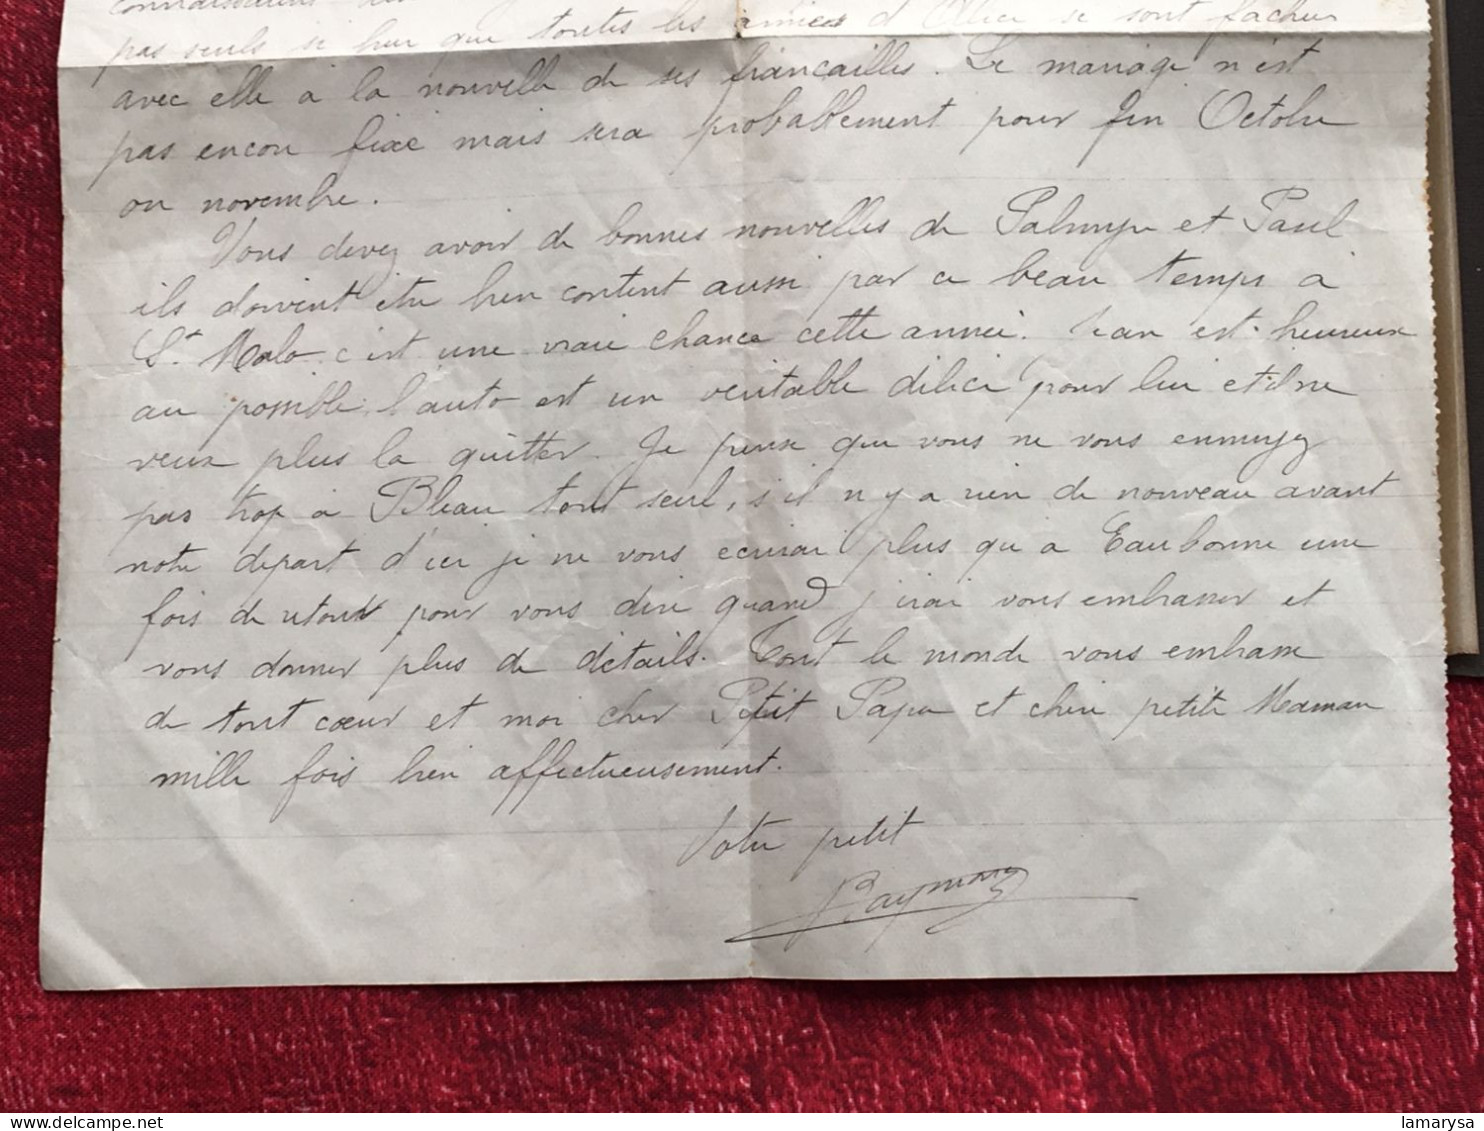 pas seuls si bien que toutes les amies d'Alice se sont fachees
avec elle a la nouvelle de ses fiancailles. Le mariage n'est
pas encore fixé mais sera probablement pour fin Octobre
ou novembre.
Vous devez avoir de bonnes nouvelles de Palmyre et Paul
ils doivent être bien content aussi par ce beau temps à
St Malo c'est une vraie chance cette année. Jean est heureux
au possible, l'auto est un veritable délice pour lui et il ne
veux plus la quitter. Je pense que vous ne vous ennuyez
pas trop à Bleau tout seul, s'il n'y a rien de nouveau avant
notre depart d'ici je ne vous ecrirai plus qu'a Eaubonne une
fois de retour pour vous dire quand j'irai vous embrasser et
vous donner plus de détails. Tout le monde vous embrasse
de tout cœur et moi cher Petit Papa et chère petite Maman
mille fois bien affectueusement.
Votre petit
Raymond
lamarysa